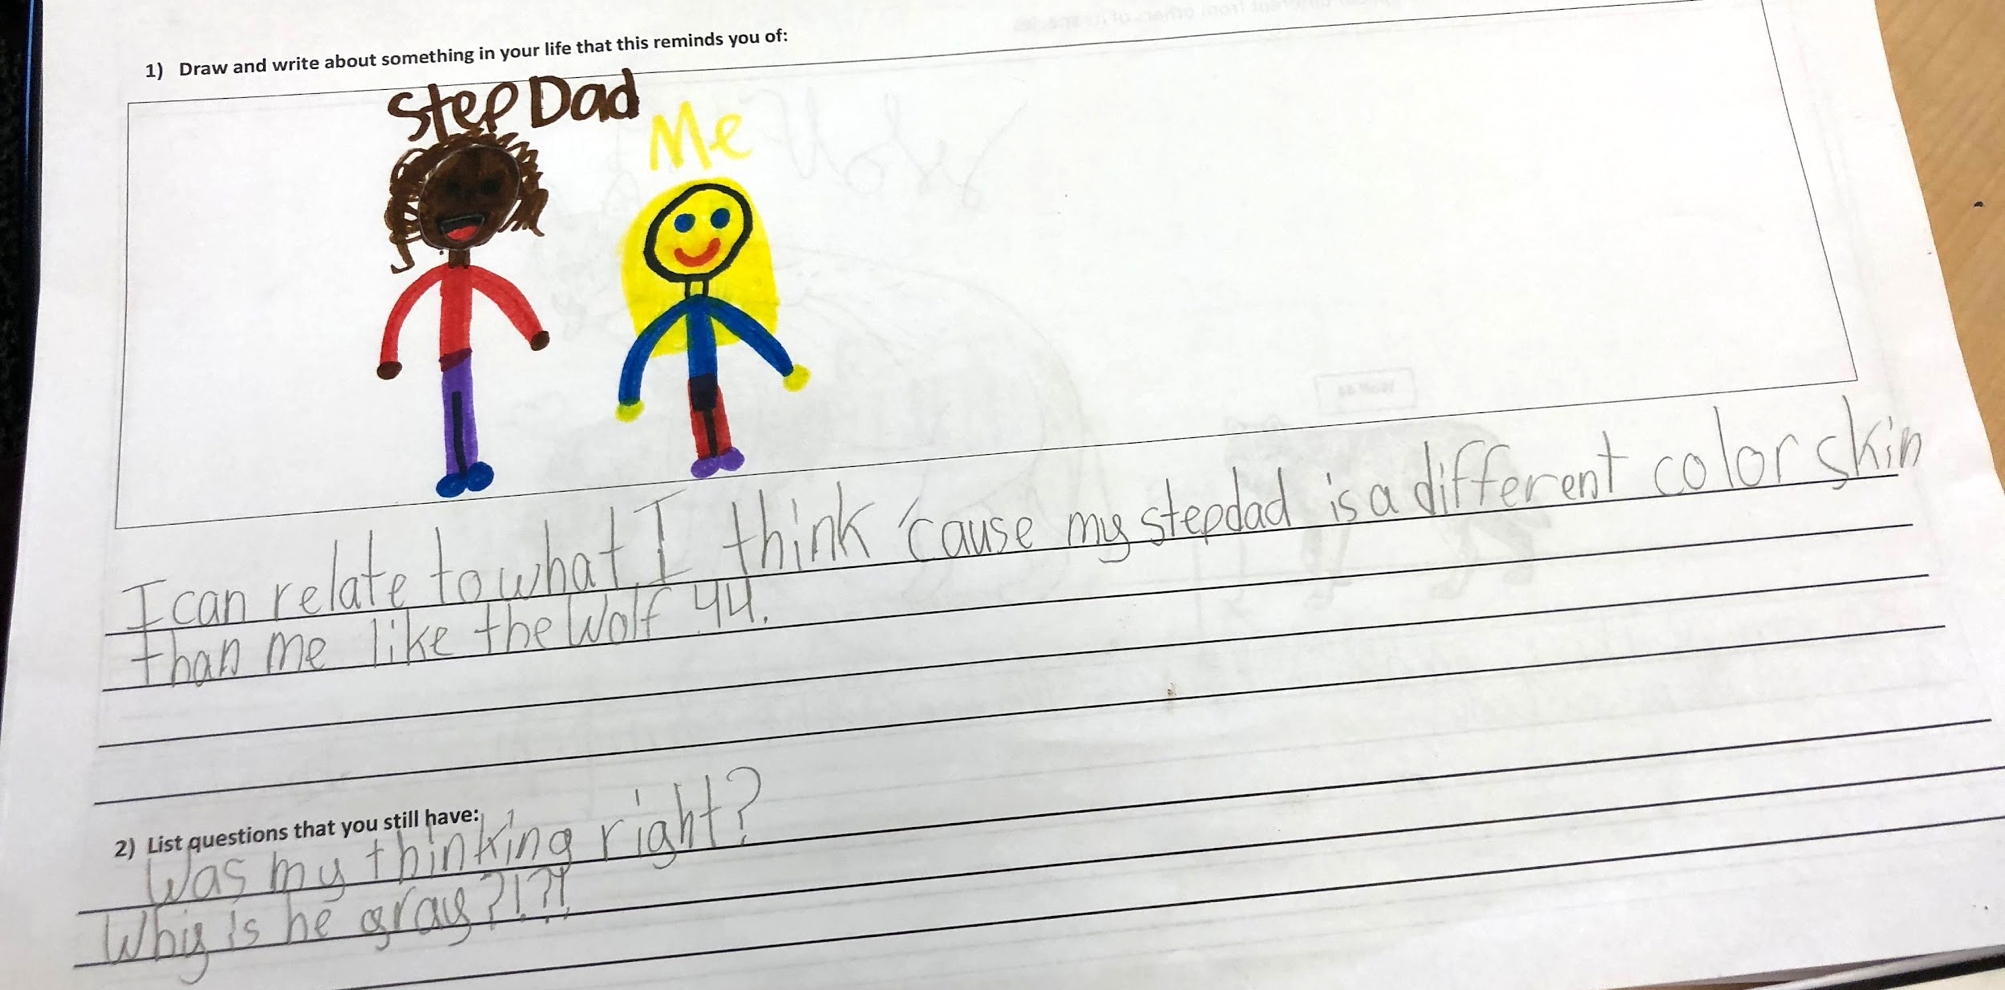 1) Draw and write about something in your life that this reminds you of:
Step Dad
Me
I can relate to what I think 'cause my stepdad is a different color skin
than me like the Wolf 44.
2) List questions that you still have:
Was my thinking right?
Why is he gray?!?!